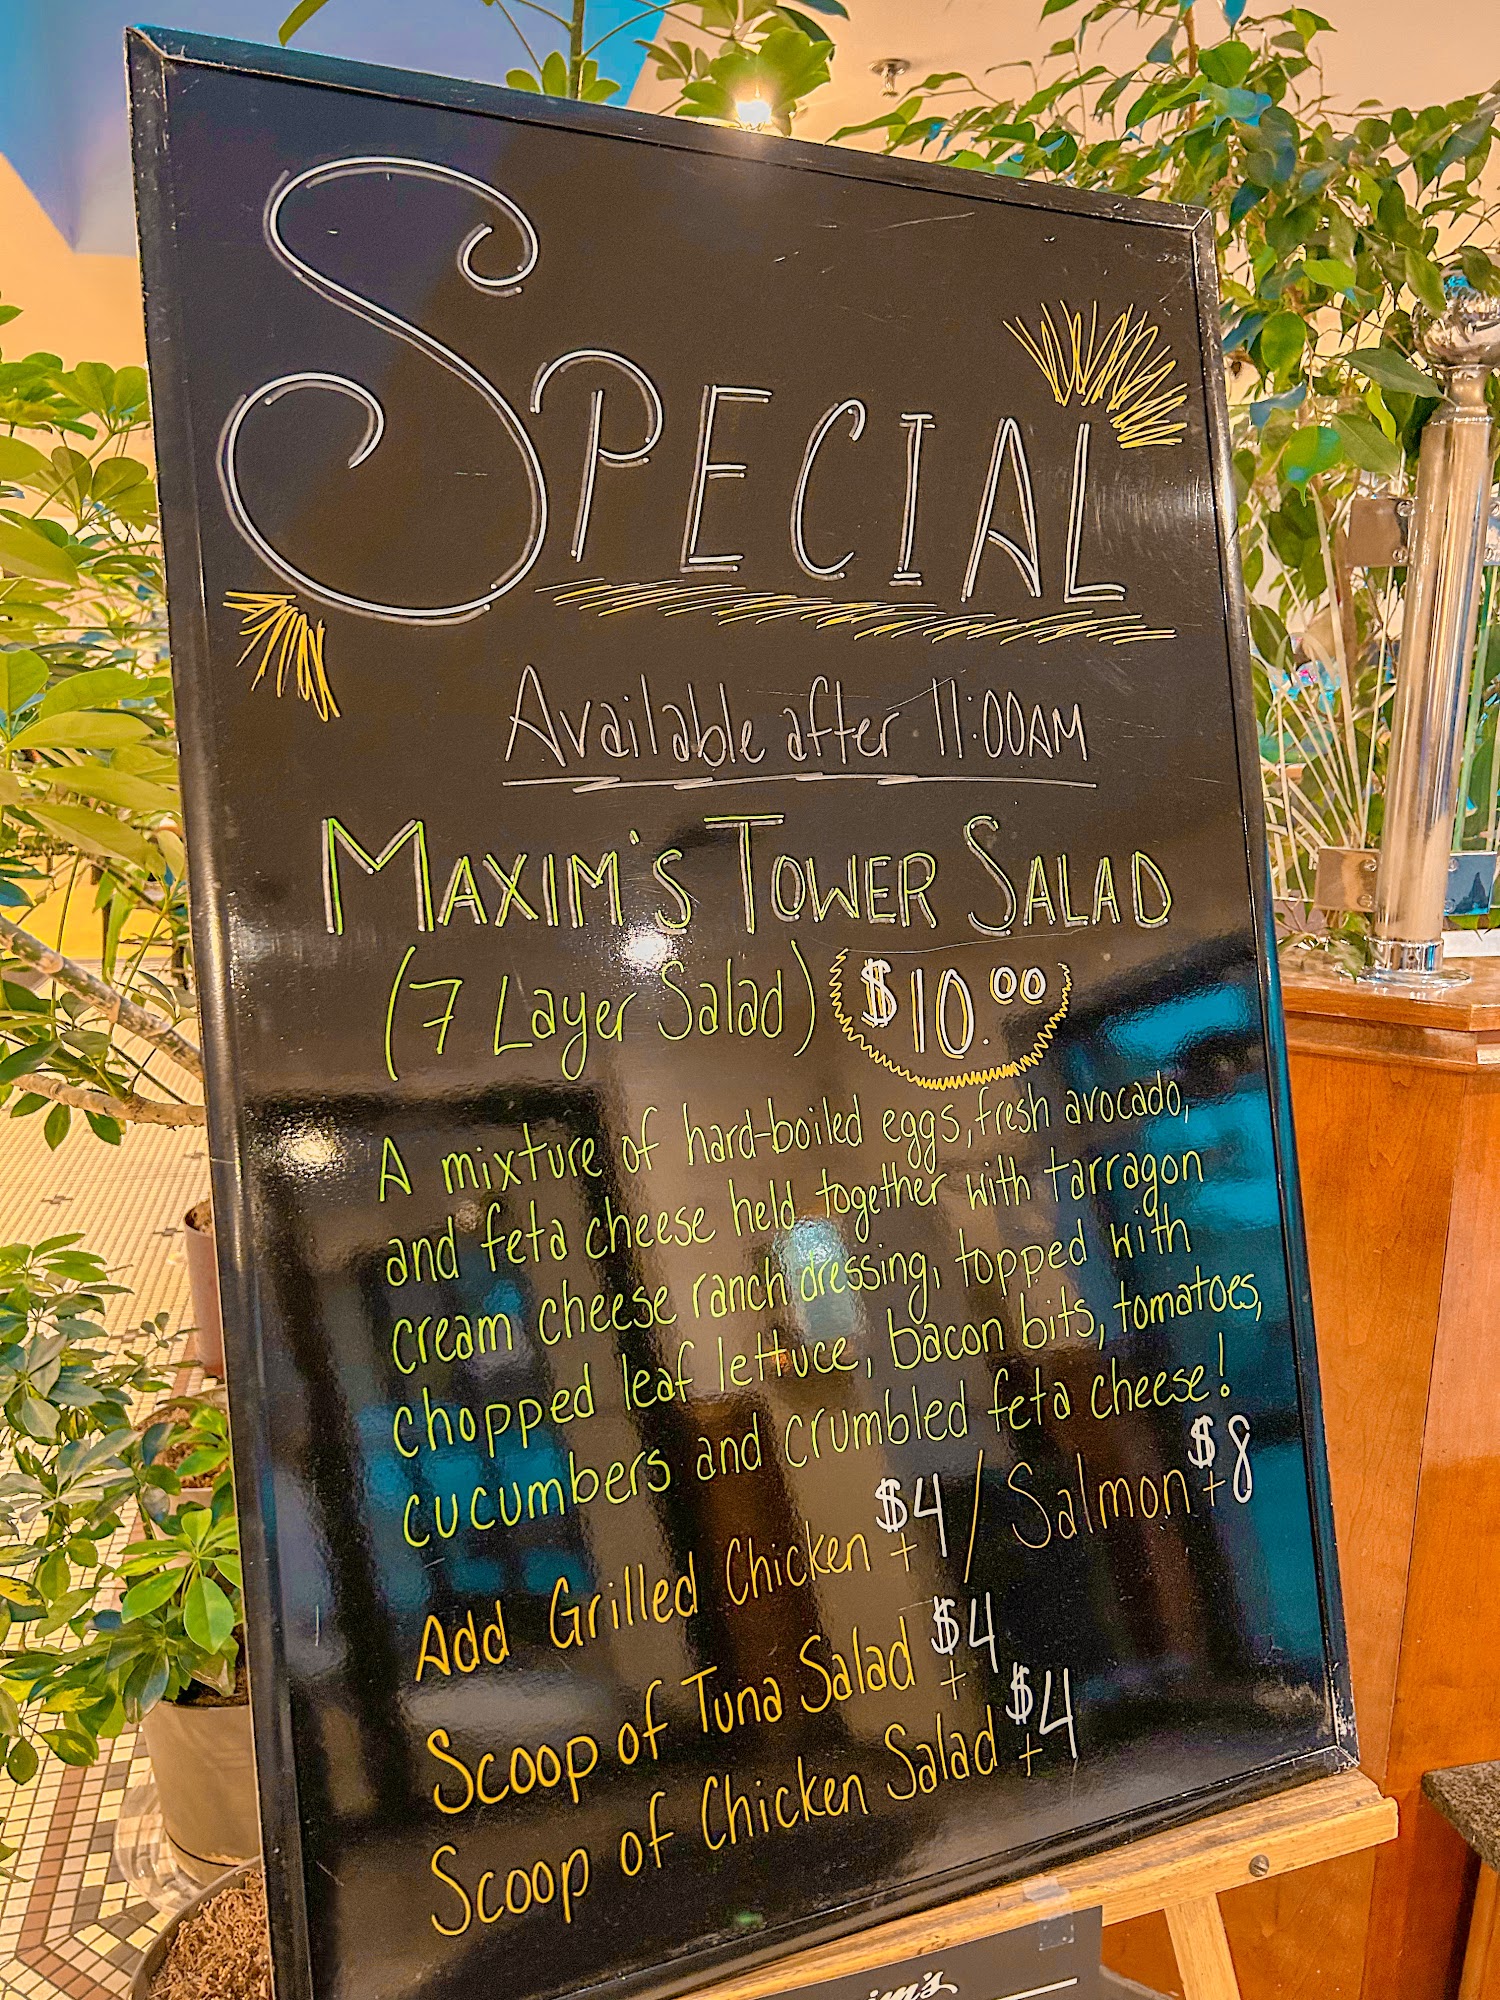 SPECIAL
Available after 11:00AM
MAXIM'S TOWER SALAD
(7 Layer Salad) $10.00
A mixture of hard-boiled eggs, fresh avocado,
and feta cheese held together with tarragon
cream cheese ranch dressing, topped with
chopped leaf lettuce, bacon bits, tomatoes,
cucumbers and crumbled feta cheese!
Add Grilled Chicken +$4 / Salmon +$8
Scoop of Tuna Salad +$4
Scoop of Chicken Salad +$4